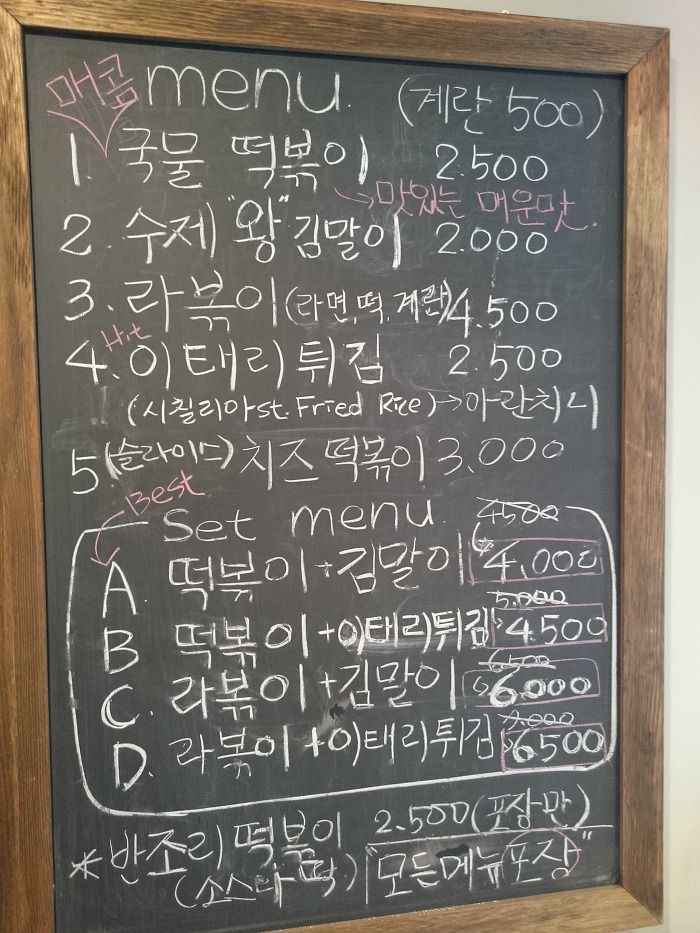 매콤 menu. (계란 500)
1. 국물 떡볶이 2.500
→맛있는 매운맛.
2. 수제 "왕" 김말이 2.000
3. 라볶이 (라면, 떡, 계란) 4.500
Hit
4. 이태리튀김 2.500
(시칠리아st. Fried Rice)→아란치니
5 (슬라이스) 치즈 떡볶이 3,000
Best
Set menu. 4500
A. 떡볶이+김말이 4,000
5,000
B 떡볶이+이태리튀김 4500
6,500
C. 라볶이+김말이 6,000
7,000
D. 라볶이+이태리튀김 6500
* 반조리 떡볶이 2.500(포장만)
"모든메뉴포장"